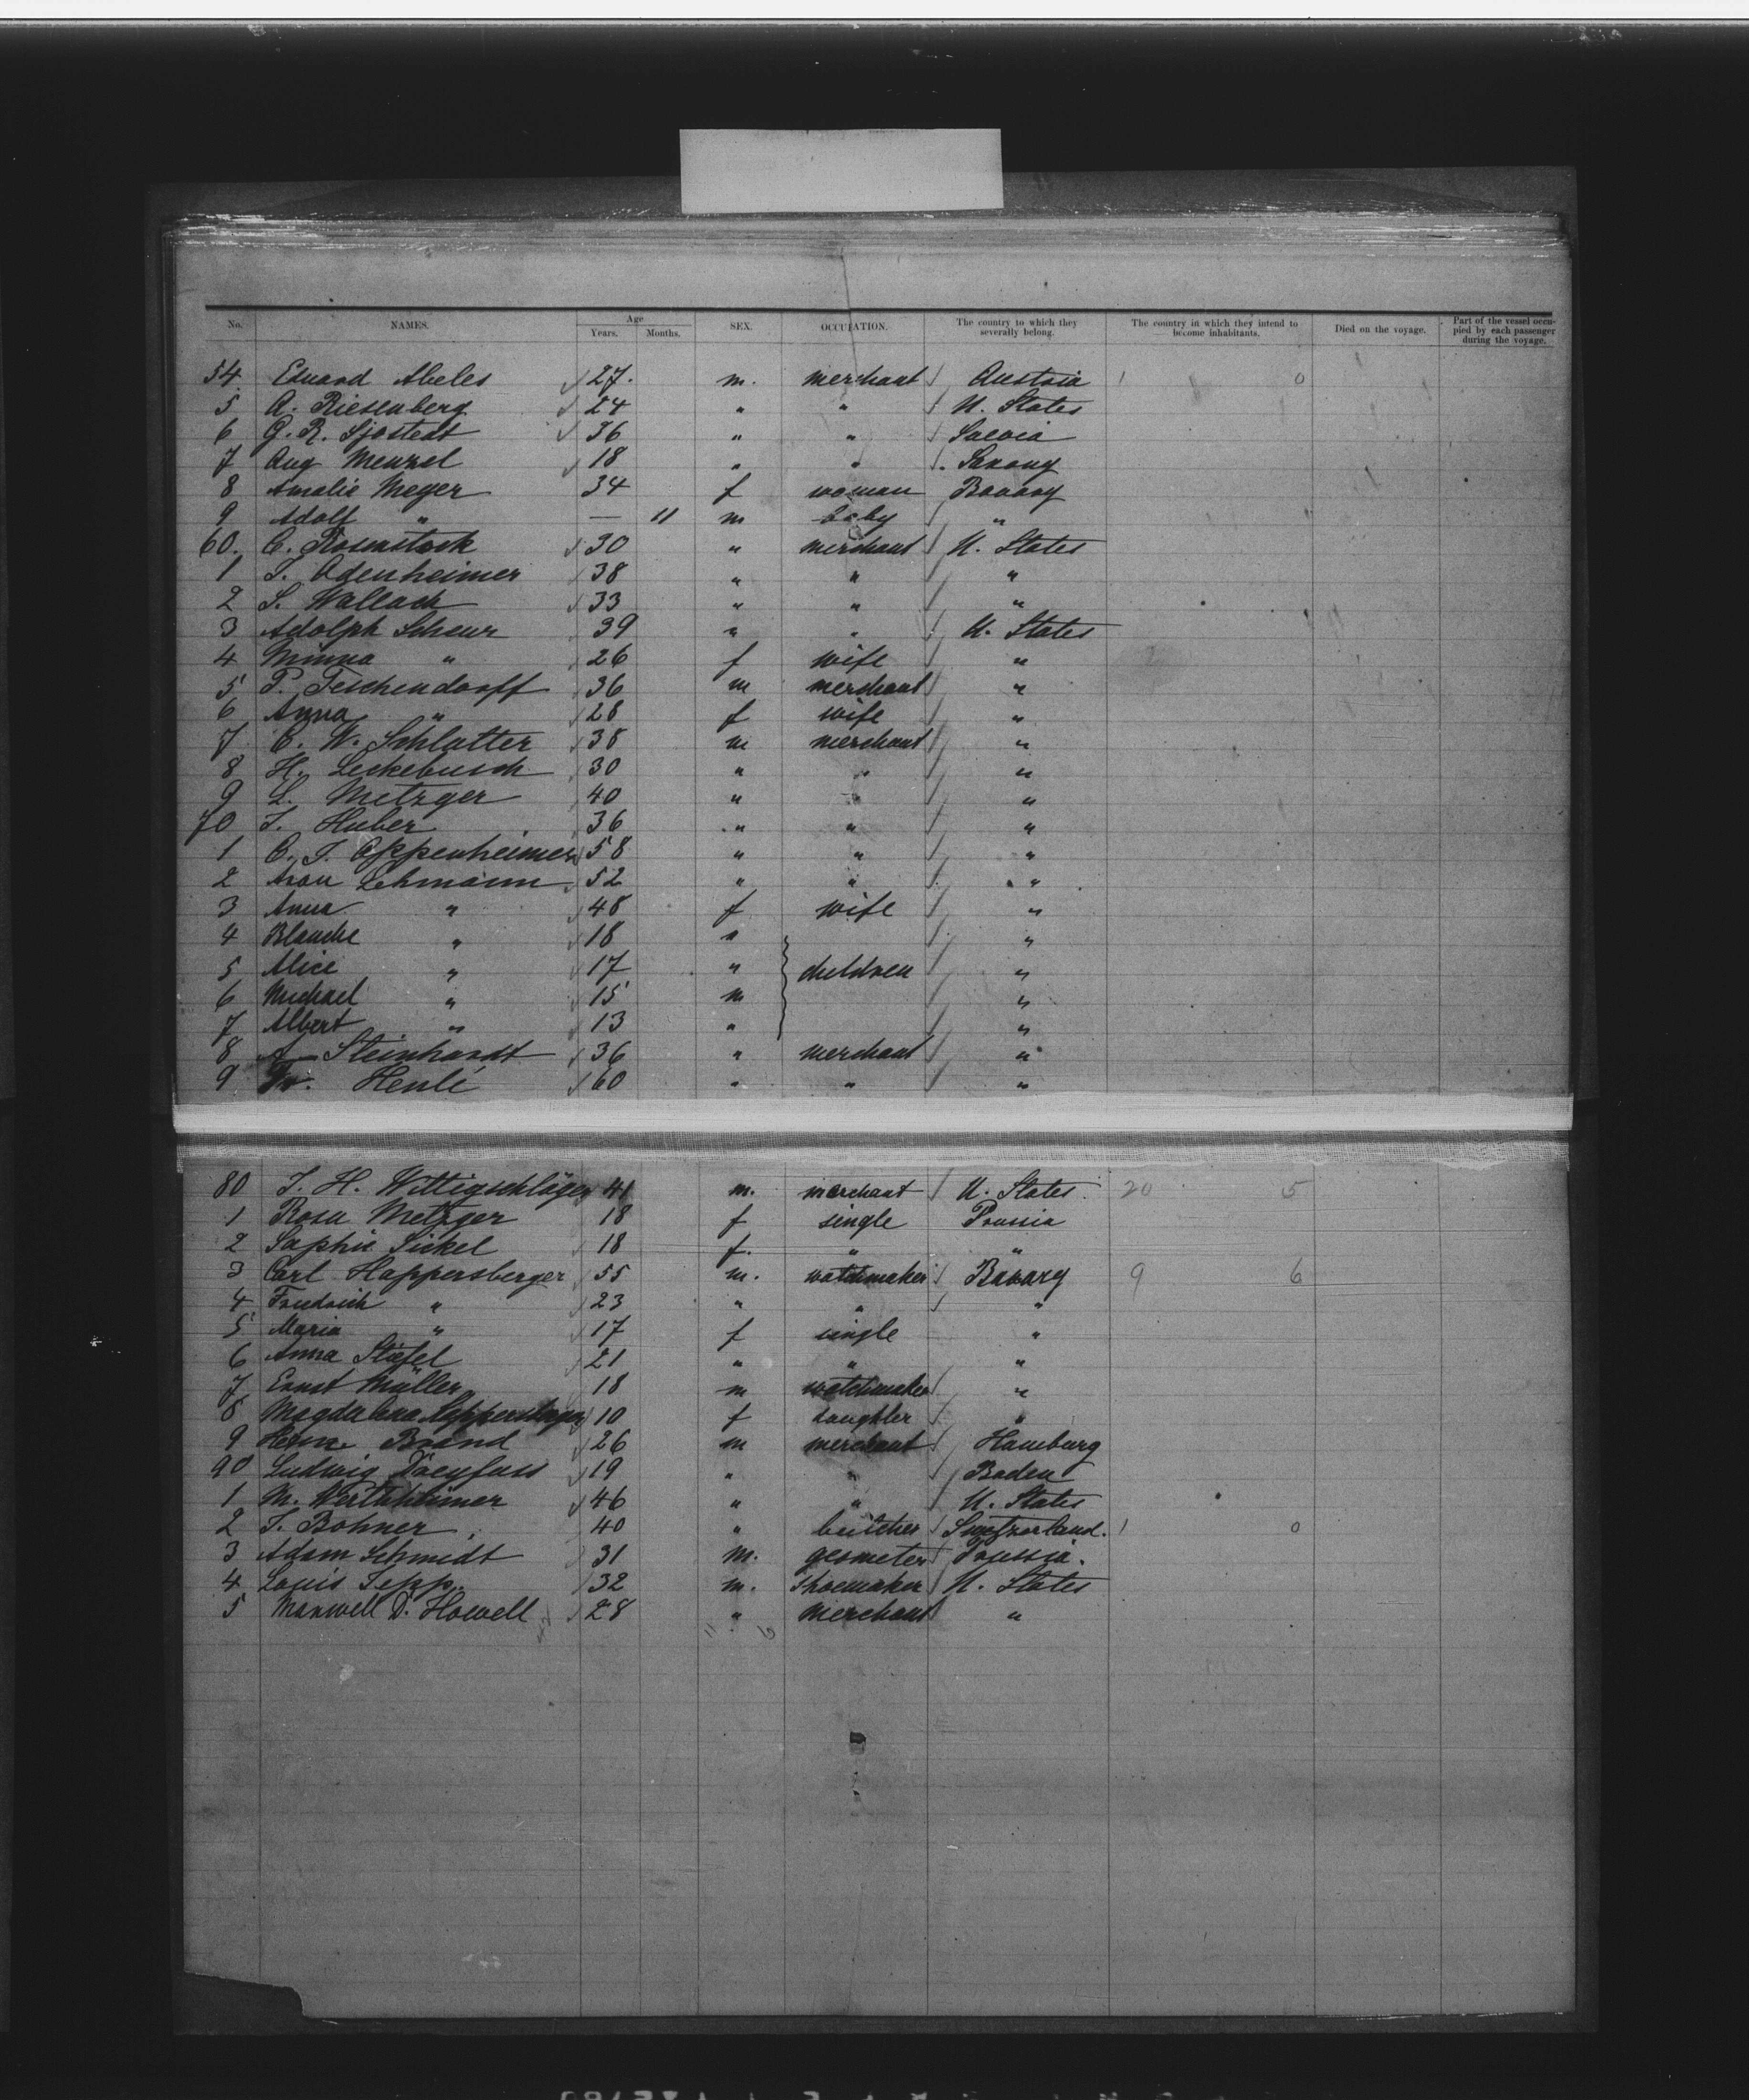 No. NAMES. Age Years. Months. SEX. OCCUPATION. The country to which they severally belong. The country in which they intend to become inhabitants. Died on the voyage. Part of the vessel occupied by each passenger during the voyage.
54. Eduard Abeles 27. m. merchant Austria 1 0
5 A. Riesenberg 24 " " U. States
6 G. R. Sjostedt 36 " " Suevia
7 Aug Menzel 18 " " Saxony
8 Amalie Meyer 34 f woman Bavary
9 Adolf " — 11 m baby "
60. C. Rosenstock 30 " merchant U. States
1 J. Odenheimer 38 " " "
2 S. Wallach 33 " " "
3 Adolph Scheur 39 " " U. States
4 Minna " 26 f wife "
5 P. Teschendorff 36 m merchant "
6 Anna " 28 f wife "
7 C. W. Schlatter 38 m merchant "
8 H. Leckebusch 30 " " "
9 L. Metzger 40 " " "
70 J. Huber 36 " " "
1 C. J. Oppenheimer 58 " " "
2 Aron Lehmann 52 " " "
3 Anna " 48 f wife "
4 Blanche " 18 " "
5 Alice " 17 " children "
6 Michael " 15 m "
7 Albert " 13 " "
8 A Steinhardt 36 " merchant "
9 Henlé 60 " " "
80 J. H. Wittigschläger 41 m. merchant U. States 20 5
1 Rosa Metzger 18 f single Prussia
2 Sophie Sickel 18 f. " "
3 Carl Happersberger 55 m. watchmaker Bavary 9 6
4 Friedrich " 23 " " "
5 Maria " 17 f single "
6 Anna Stiefel 21 " " "
7 Ernst Müller 18 m watchmaker "
8 Magdalena Happersberger 10 f daughter "
9 Brand 26 m merchant Hamburg
90 Ludwig Dreyfuss 19 " " Baden
1 M. Wertheimer 46 " " U. States
2 J. Bohner 40 " butcher Switzerland. 1 0
3 Adam Schmidt 31 m. geometer Prussia.
4 Louis Sepp. 32 m. Shoemaker U. States
5 Maxwell D. Howell 28 " Merchant "